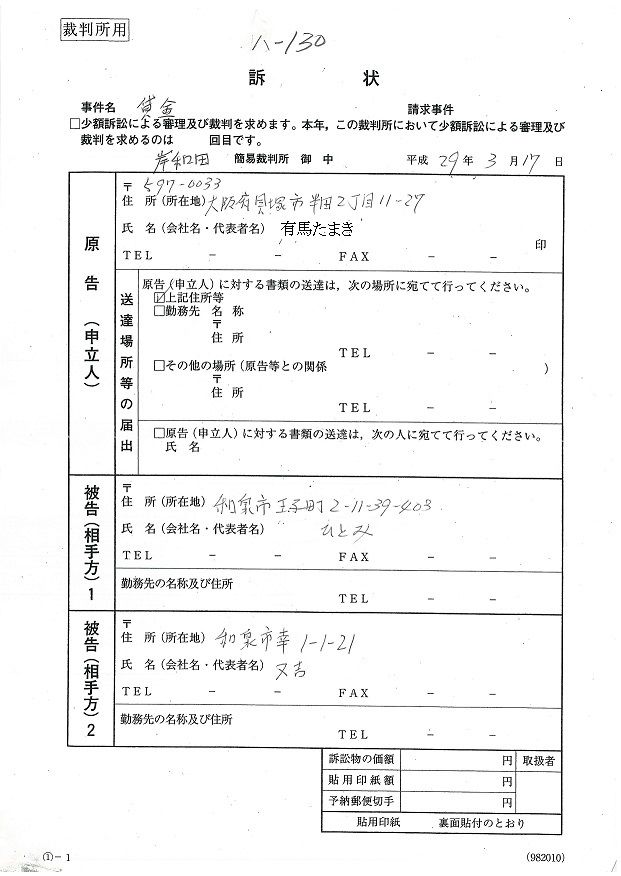 裁判所用
ハ-130
訴 状
事件名 貸金 請求事件
□少額訴訟による審理及び裁判を求めます。本年，この裁判所において少額訴訟による審理及び
裁判を求めるのは 回目です。
岸和田 簡易裁判所 御 中 平成 29 年 3 月 17 日
原告（申立人）
〒597-0033
住 所（所在地）大阪府貝塚市半田2丁目11-27
氏 名（会社名・代表者名）有馬たまき
印
TEL － － FAX － －
送達場所等の届出
原告（申立人）に対する書類の送達は，次の場所に宛てて行ってください。
☑上記住所等
□勤務先 名 称
〒
住 所
TEL － －
□その他の場所（原告等との関係 ）
〒
住 所
TEL － －
□原告（申立人）に対する書類の送達は，次の人に宛てて行ってください。
氏 名
被告（相手方）1
〒
住 所（所在地）和泉市王子町2-11-39-403
氏 名（会社名・代表者名） ひとみ
TEL － － FAX － －
勤務先の名称及び住所
TEL － －
被告（相手方）2
〒
住 所（所在地）和泉市幸1-1-21
氏 名（会社名・代表者名）又吉
TEL － － FAX － －
勤務先の名称及び住所
TEL － －
訴訟物の価額 円 取扱者
貼用印紙額 円
予納郵便切手 円
貼用印紙 裏面貼付のとおり
①－1
(982010)